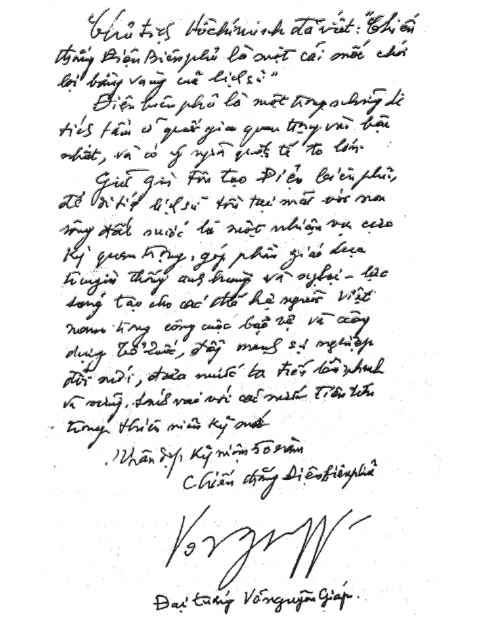 Chủ tịch Hồ chí minh đã viết: "Chiến
thắng Điện Biên phủ là một cái mốc chói
lọi bằng vàng của lịch sử"
Điện biên phủ là một trong những di
tích tầm cỡ quốc gia quan trọng vào bậc
nhất, và có ý nghĩa quốc tế to lớn.
Giữ gìn tôn tạo Điện biên phủ,
để di tích lịch sử tồn tại mãi với non
sông đất nước là một nhiệm vụ cực
kỳ quan trọng, góp phần giáo dục
truyền thống anh hùng và nghị lực
sáng tạo cho các thế hệ người Việt
nam trong công cuộc bảo vệ và xây
dựng tổ quốc, đẩy mạnh sự nghiệp
đổi mới, đưa nước ta tiến lên nhanh
và vững, sánh vai với các nước tiên tiến
trong thiên niên kỷ mới
Nhân dịp kỷ niệm 50 năm
Chiến thắng Điện biên phủ
Đại tướng Võ nguyên Giáp.